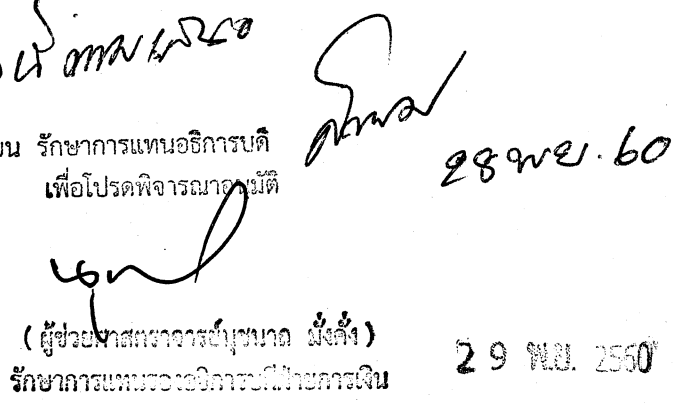 ตามเสนอ
รักษาการแทนอธิการบดี
เพื่อโปรดพิจารณาอนุมัติ
28 พย. 60
(ผู้ช่วยศาสตราจารย์นุชนาถ มั่งคั่ง)
รักษาการแทนรองอธิการบดีฝ่ายการเงิน
29 พ.ย. 2560